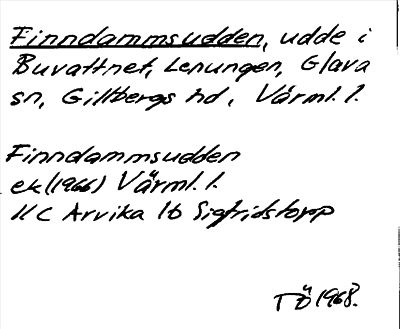 Finndammsudden, udde i
Buvattnet, Lenungen, Glava
sn, Gillbergs hd, Värml. l.
Finndammsudden
ek (1966) Värml. l.
11C Arvika 1b Sigfridstorp
TÖ 1968.